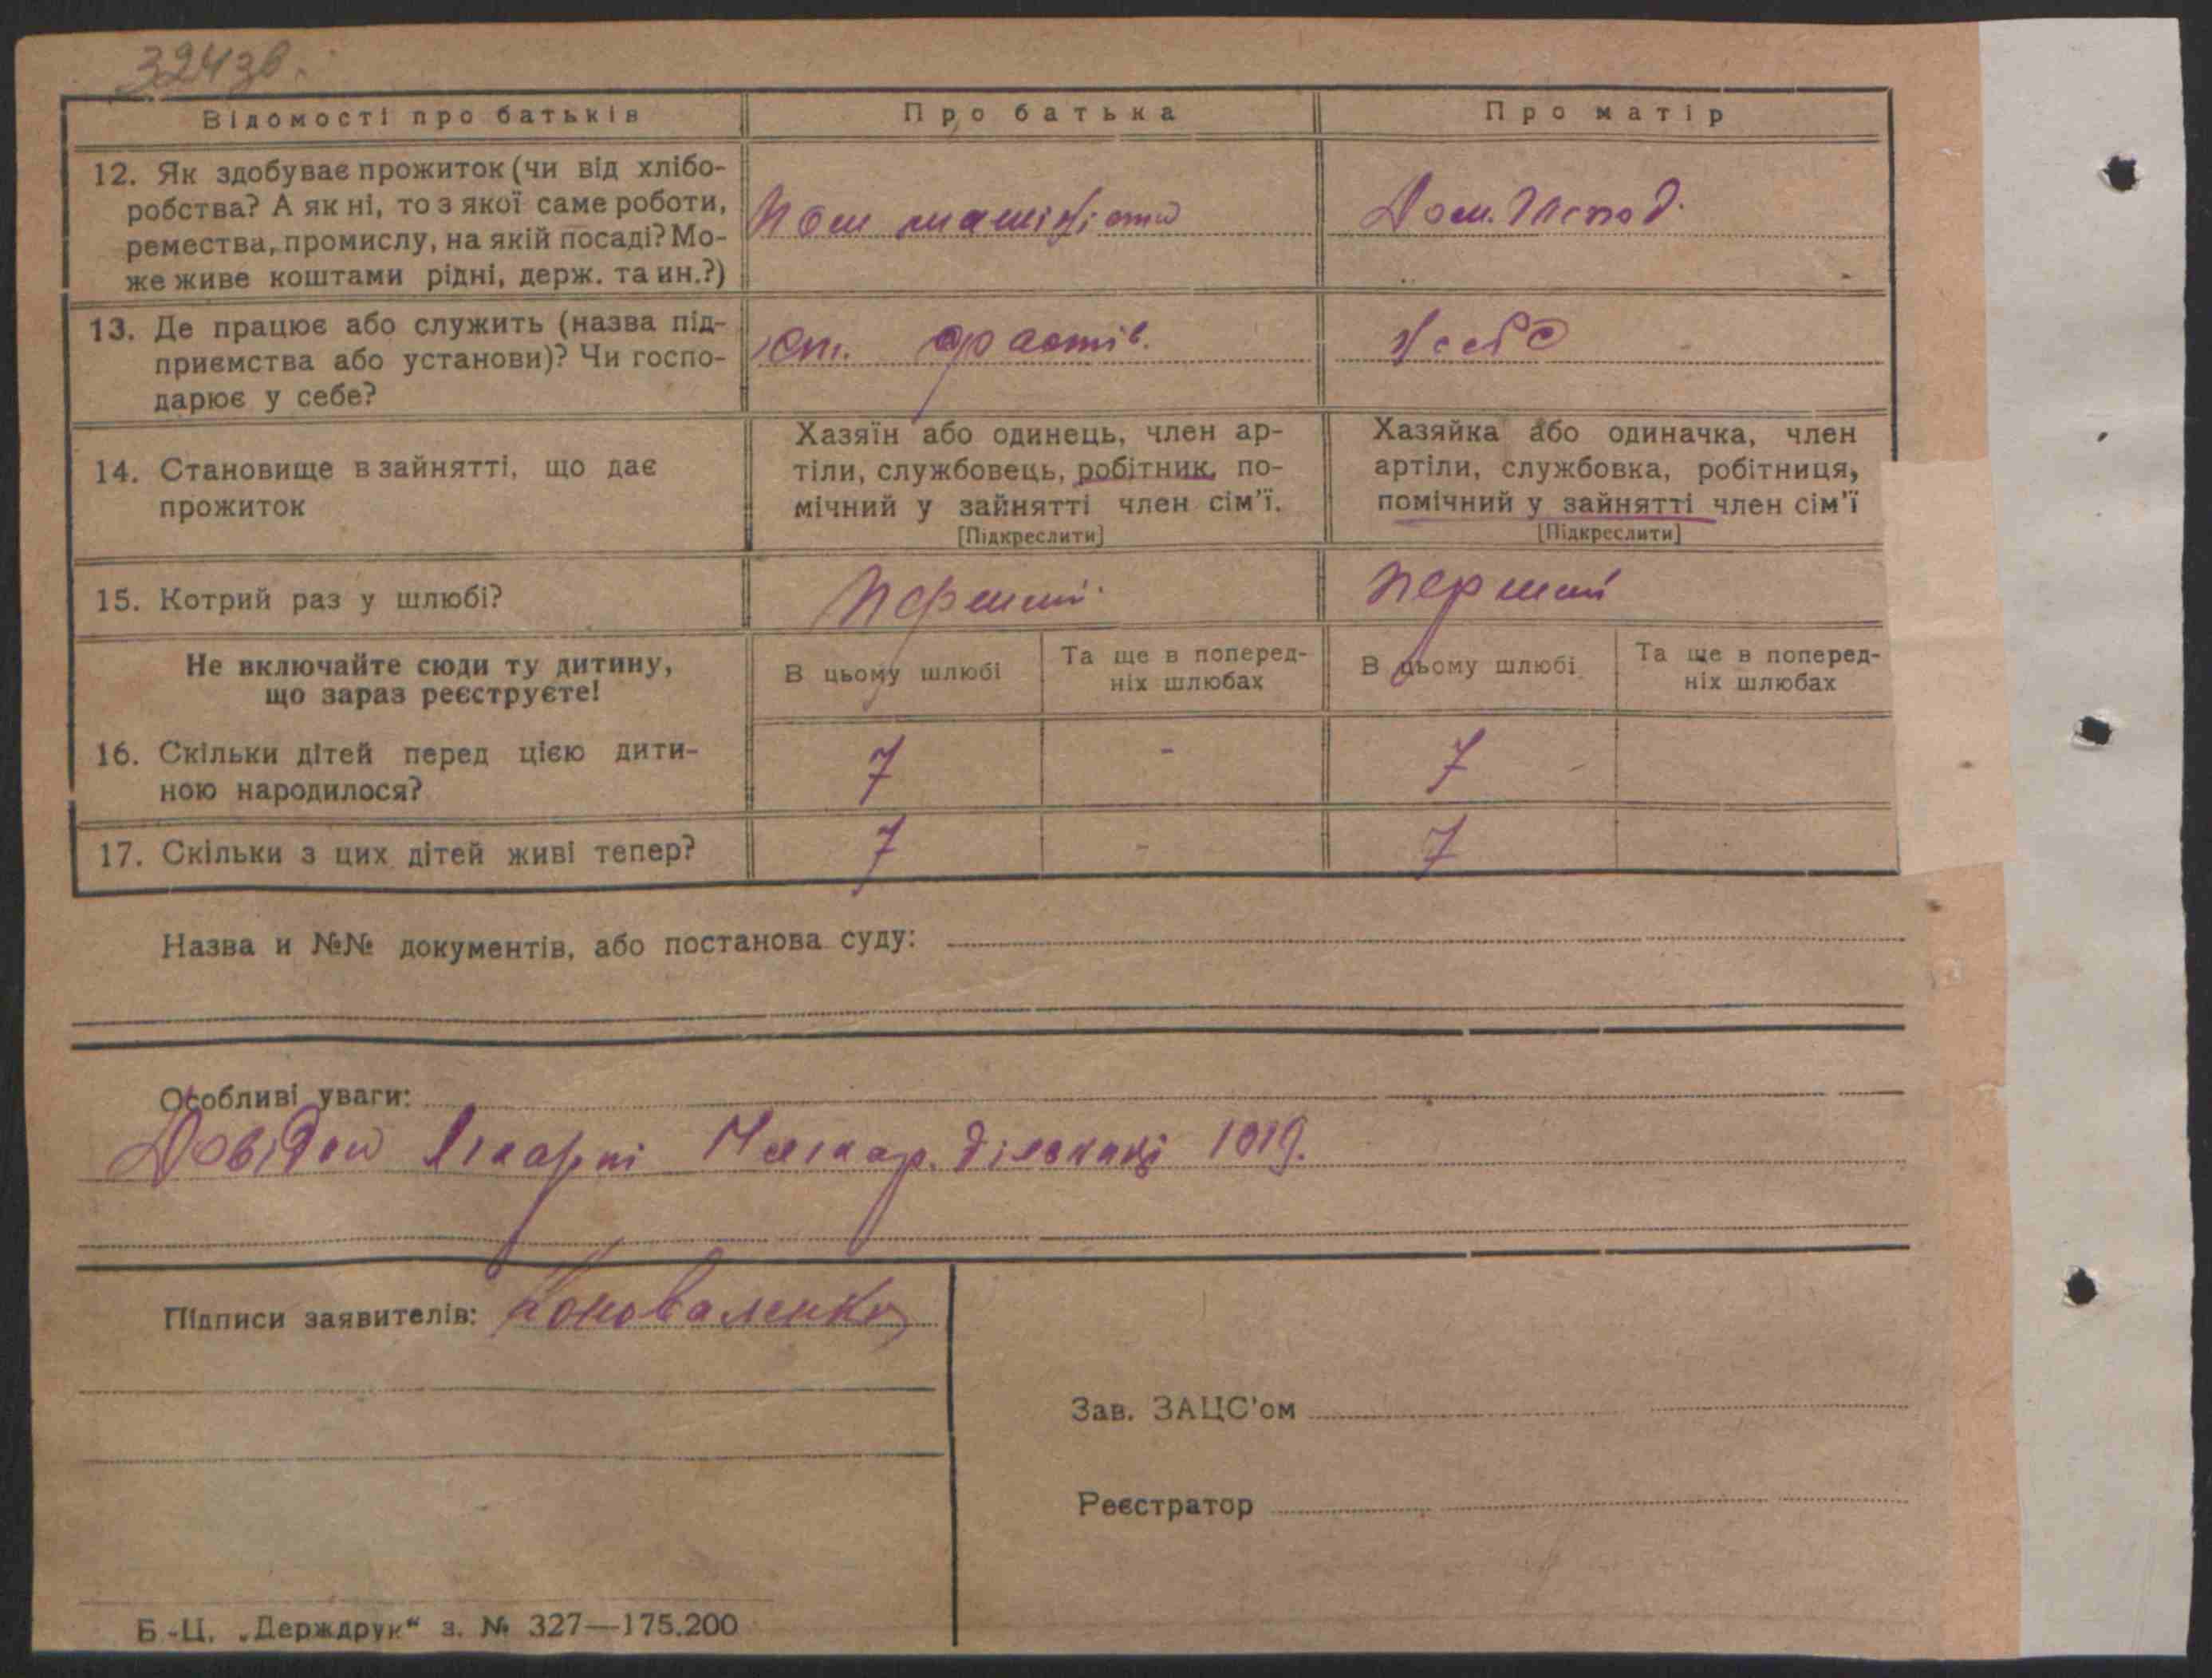 324 зв.
Відомості про батьків
Про батька
Про матір
12. Як здобуває прожиток (чи від хлібо-
робства? А як ні, то з якої саме роботи,
ремества, промислу, на якій посаді? Мо-
же живе коштами рідні, держ. та ин.?)
Пом машініста
Дом. Господ.
13. Де працює або служить (назва під-
приємства або установи)? Чи госпо-
дарює у себе?
ст. Фастів.
У себе
14. Становище в зайнятті, що дає
прожиток
Хазяїн або одинець, член ар-
тіли, службовець, робітник, по-
мічний у зайнятті член сім'ї.
[Підкреслити]
Хазяйка або одиначка, член
артіли, службовка, робітниця,
помічний у зайнятті член сім'ї
[Підкреслити]
15. Котрий раз у шлюбі?
перший
перший
Не включайте сюди ту дитину,
що зараз реєструєте!
В цьому шлюбі
Та ще в поперед-
ніх шлюбах
В цьому шлюбі
Та ще в поперед-
ніх шлюбах
16. Скільки дітей перед цією дити-
ною народилося?
7
-
7
17. Скільки з цих дітей живі тепер?
7
-
7
Назва и №№ документів, або постанова суду:
Особливі уваги:
Довідка Лікарні 1019.
Підписи заявителів: Коноваленко
Зав. ЗАЦС'ом
Реєстратор
Б.-Ц. „Держдрук“ з. № 327—175.200